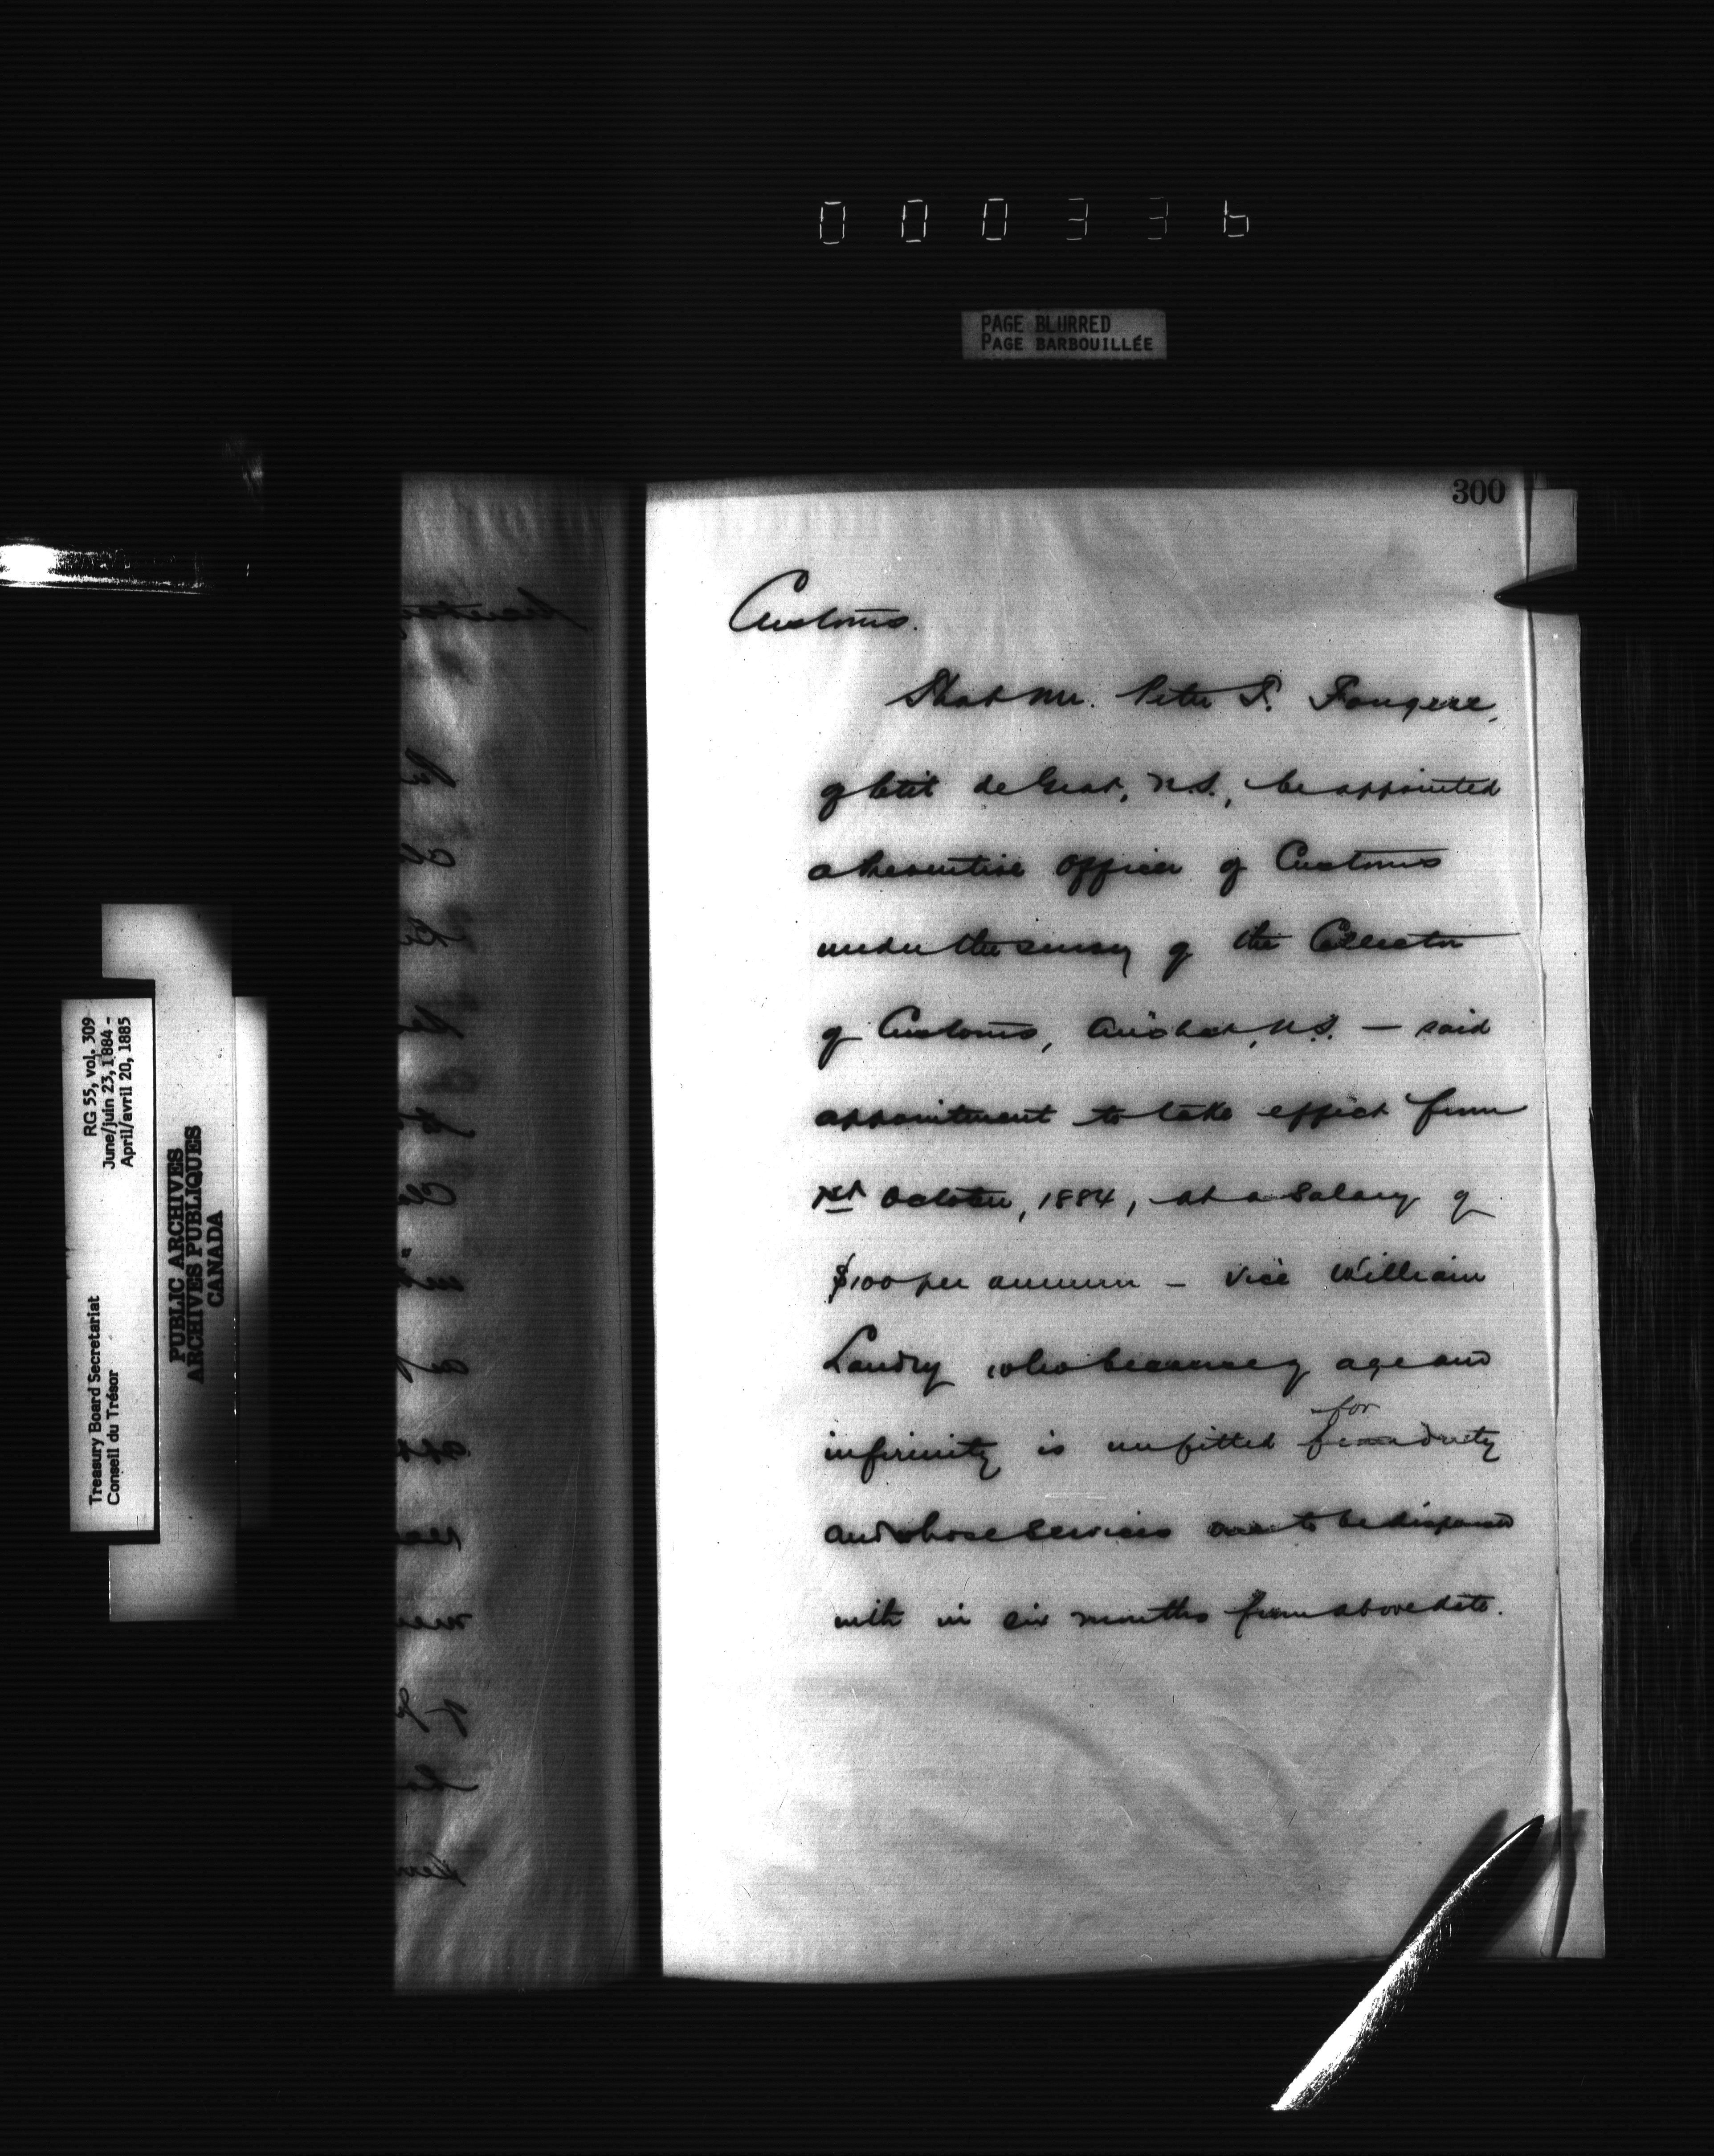 000336
PAGE BLURRED
PAGE BARBOUILLÉE
300
Customs.
That Mr. Peter F. Fougere,
of Petit de Grat, N.S., be appointed
a Preventive Officer of Customs
under the survey of the Collector
of Customs, Arichat, N.S. — said
appointment to take effect from
1st October, 1884, at a salary of
$100 per annum – vice William
Landry who because of age and
infirmity is unfitted for duty
and whose services are to be dispensed
with in six months from above date.
RG 55, vol. 309
June/juin 23, 1884 -
April/avril 20, 1885
Treasury Board Secretariat
Conseil du Trésor
PUBLIC ARCHIVES
ARCHIVES PUBLIQUES
CANADA